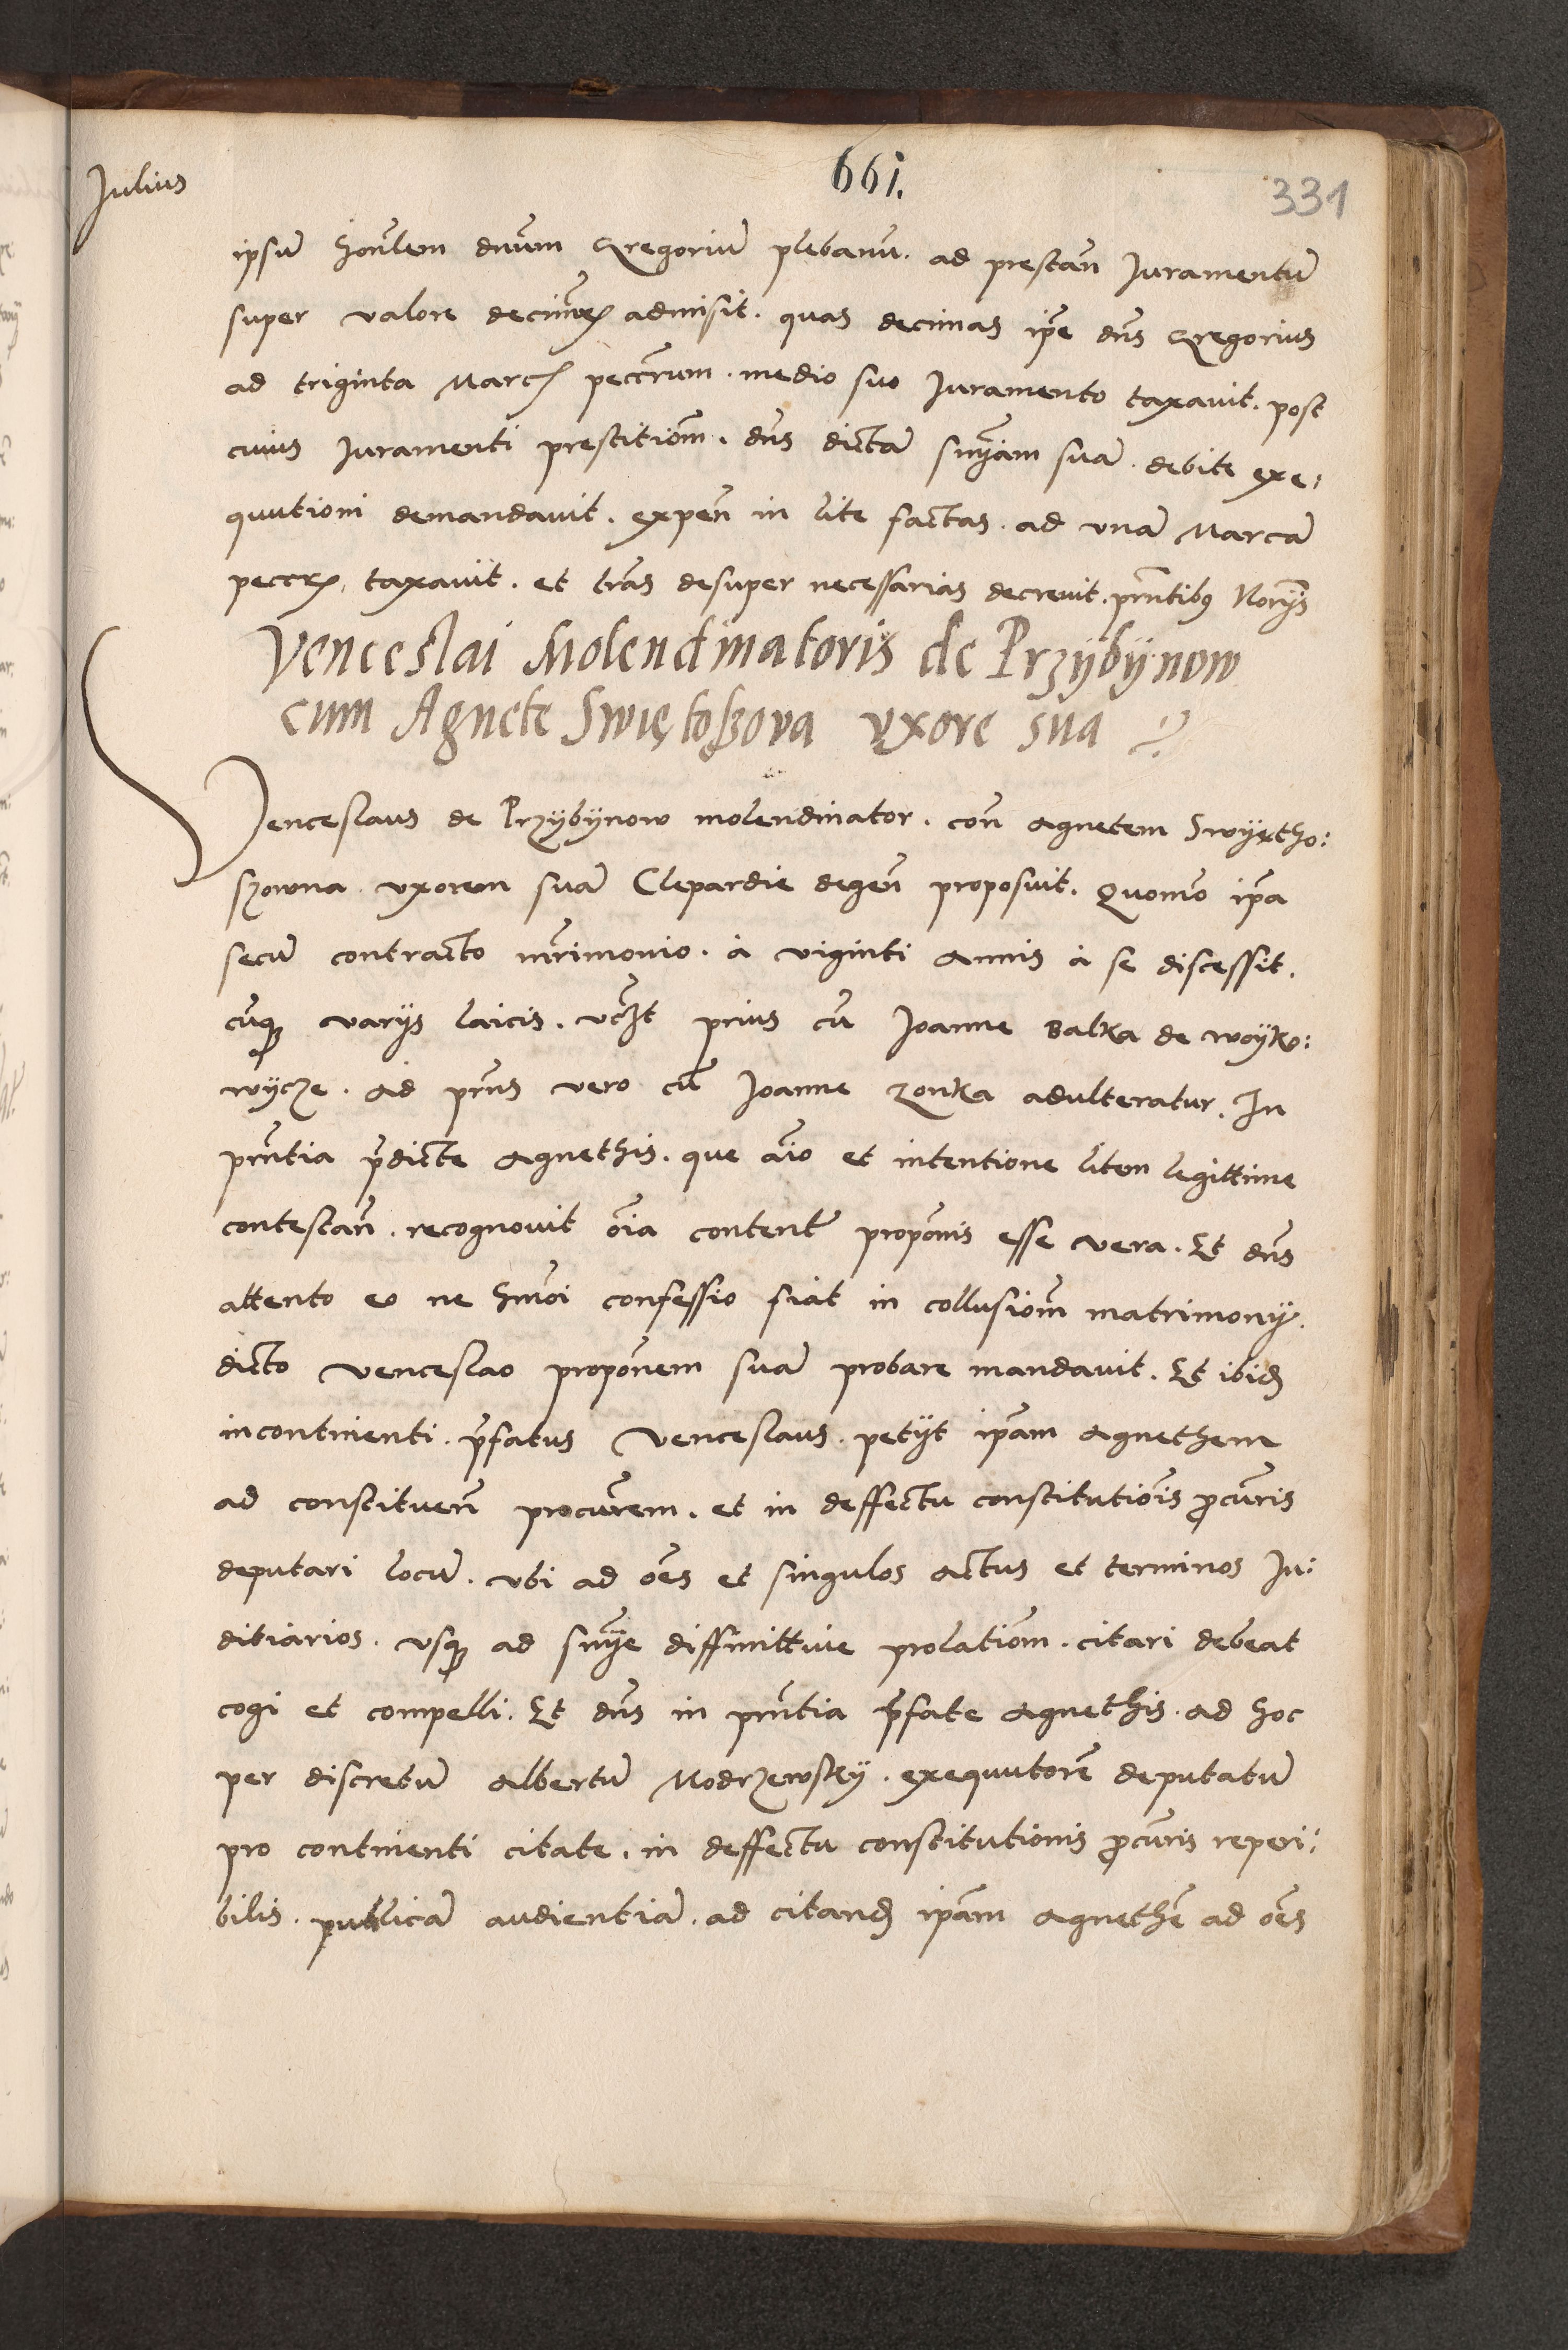 Julius
661.
331
ipsum honlem dnum Gregoriu plebanu. ad prestan Juramentu
super valore decimar admisit. quas decimas ipe dns Gregorius
ad triginta Marc peccrum. medio suo Juramento taxavit. post
cuius Juramenti prestitiom. dns dicta snyam sua. debite exe:
quutioni demandavit. expen in lite factas. ad vna Marca
peccr, taxavit. et lras desuper necessarias decrevit. prntibq Norys
Venceslai Molendinatoris de Przybynow
cum Agnete Swiętoszova vxore sua
Venceslaus de Przybynow molendinator. con Agnetem Swyętho:
szowna vxorem sua Clepardie degen proposuit. Quomo ipa
secu contracto mrimonio. a viginti Annis a se discessit.
cuqz varys laicis. vczt prius cu Joanne Balka de woyko:
wycze. Ad prns vero cu Joanne Zonka adulteratur. In
prntia pdicte Agnethis. que aio et intentione litem legittime
contestan. recognovit oia content proponis esse vera. Et dns
attento eo ne hmoi confessio fiat in collusiom matrimony.
dicto Venceslao proponem sua probare mandavit. Et ibid
incontinenti. pfatus Venceslaus. petyt ipam Agnethem
ad constituen procurem. et in deffectu constitutiois pcuris
deputari locu. vbi ad oes et singulos Actus et terminos Ju:
ditiarios. vsqz ad snye diffinittive prolatiom. citari debeat
cogi et compelli. Et dns in prntia pfate Agnethis. ad hoc
per discretu Albertu Modrzewsky. exequutore deputatu
pro continenti citate. in deffectu constitutionis pcuris reperi:
bilis. publica audientia. ad citand ipam Agnethe ad oes